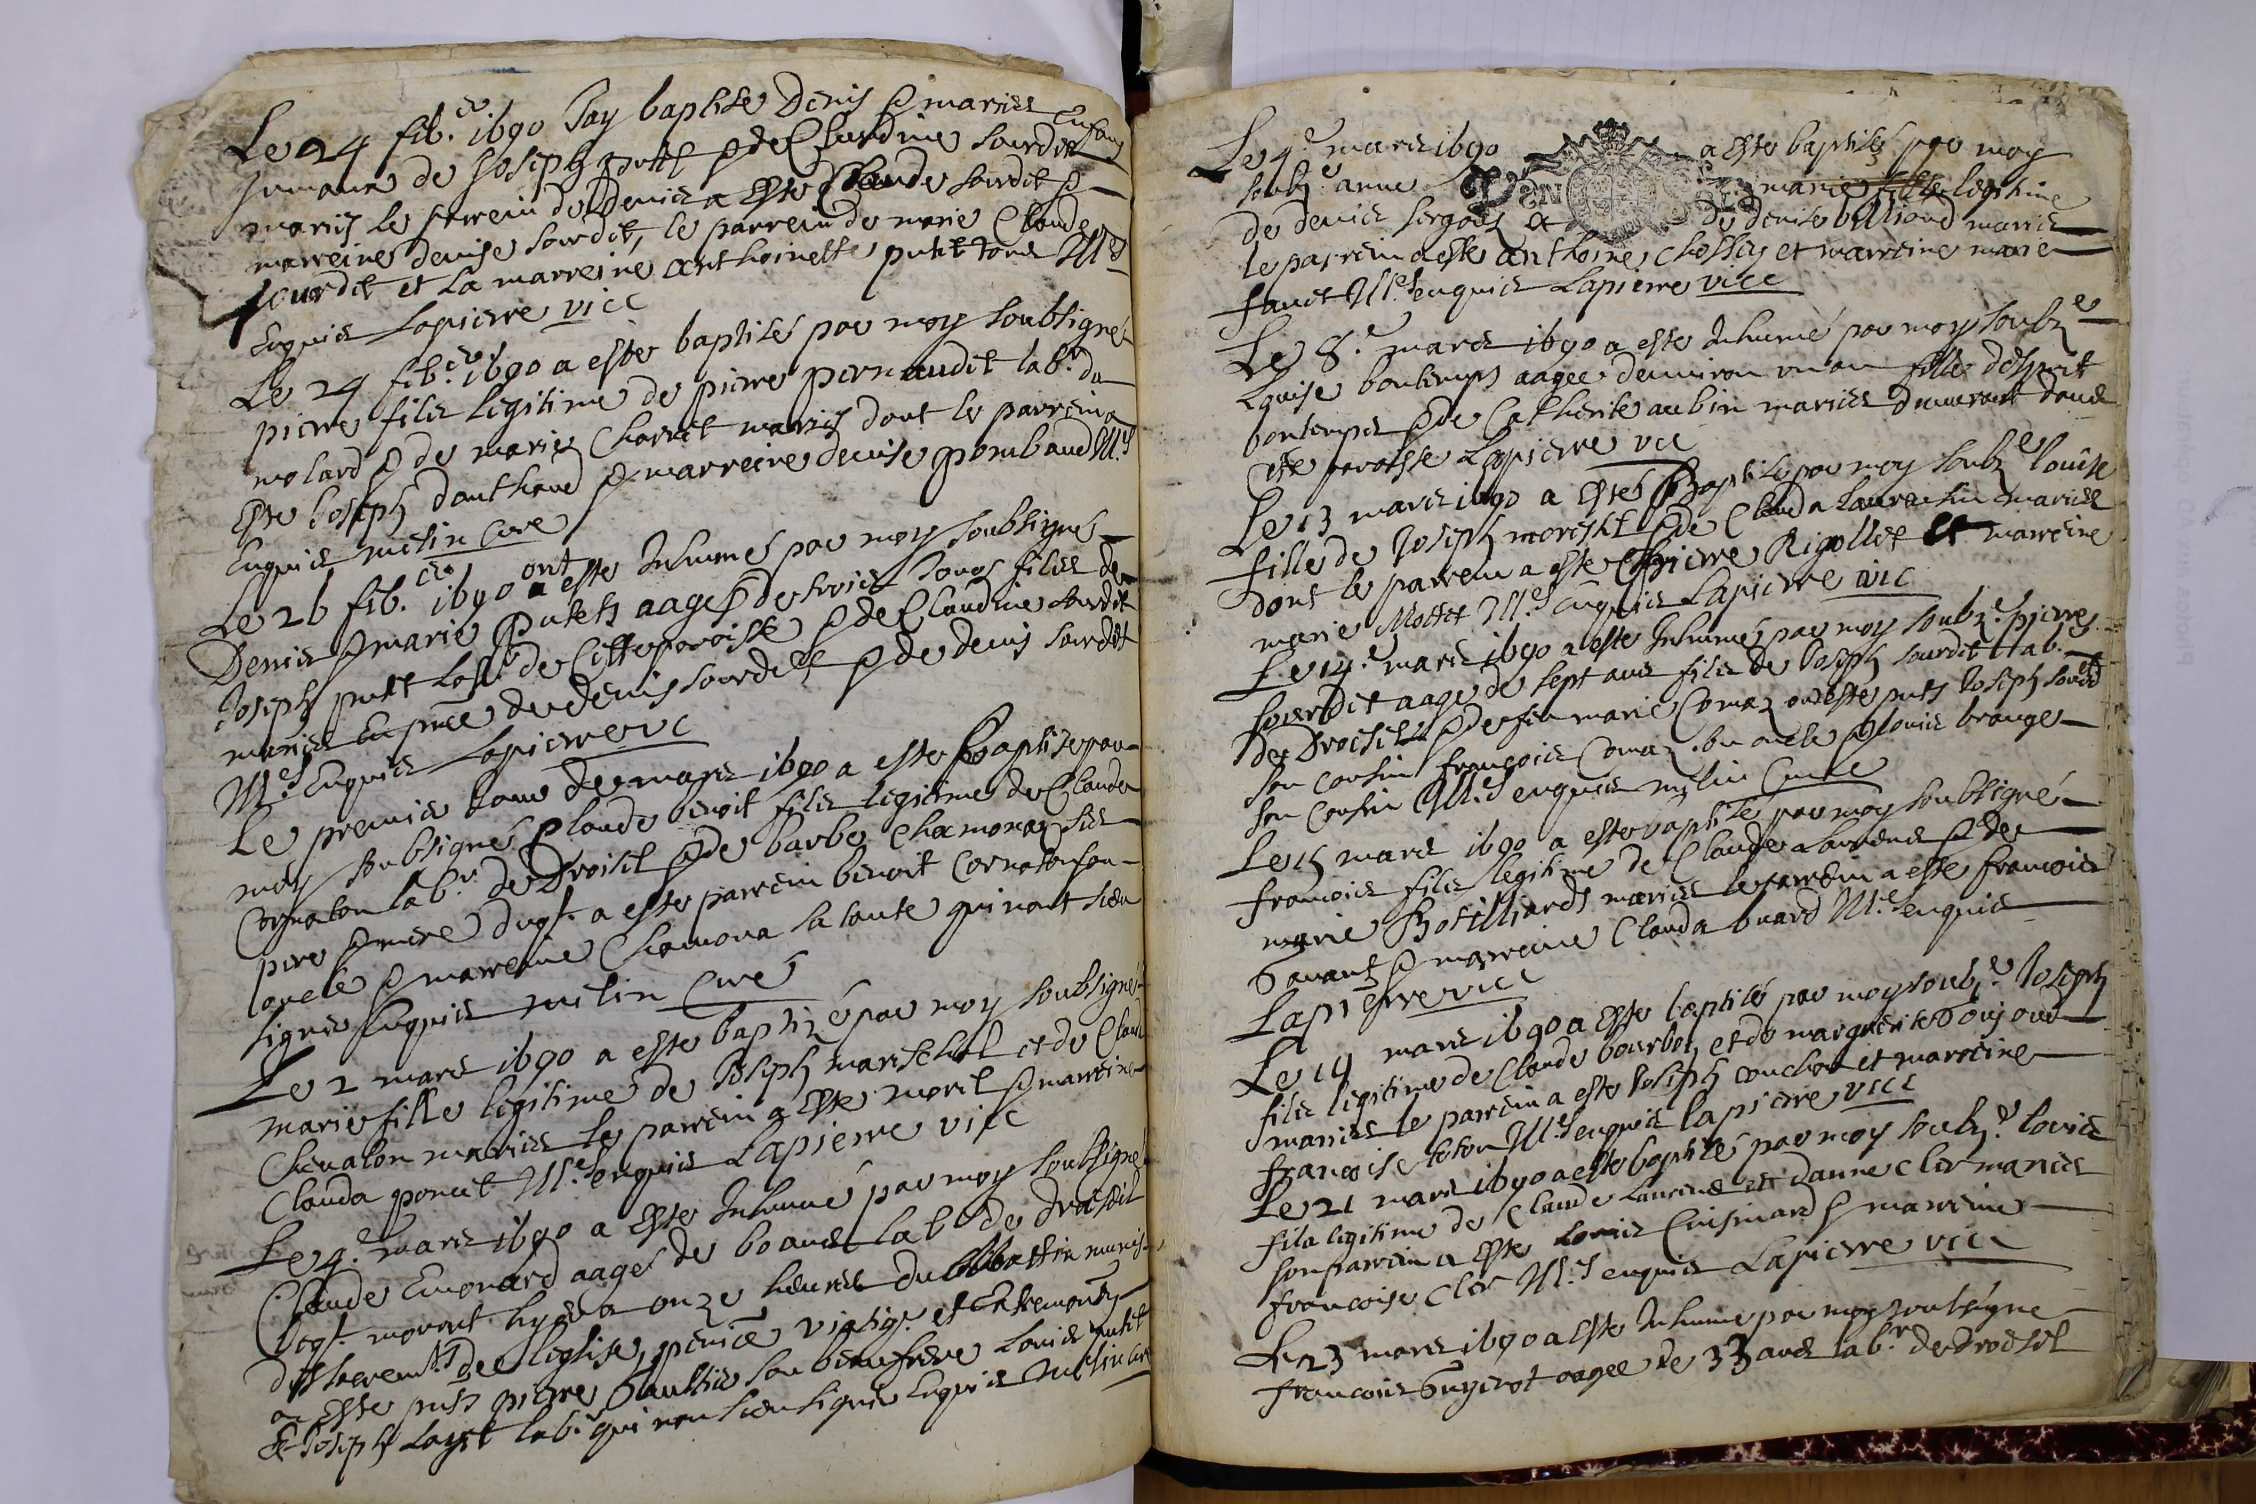 Le 24 feb.er 1690 Jay baptise Denis & maries Enfans
Jumaux de Joseph putet & de Claudine sourdit
mariés le parrein de Denis a este Claude sourdit &
marreine denise sourdit, le parrein de marie Claude
sourdit et La marreine anthoinette putet tous Ill.es
Enquis Lapierre vicc
Le 24 feb.er 1690 a esté baptisés par moy soubsigné
pierre fils legitime de pierre pernaudit lab.r du
molard & de marie Charret mariés dont le parrein a
Esté Joseph danthond & marreine denise pombaud Ill.es
Enquis metin Curé
Le 26 feb.er 1690 ont esté Inhumés par moy soubsigné
Denis & marie putets aagés de trois Jours filz de
Joseph putet de Cette paroisse & de Claudine sourdit
mariés En pnce de denis sourdit & de denis sourdit
Ill.es Enquis Lapierre vc
Le premier Jour de mars 1690 a esté Baptisé par
moy soubsigné Claude benoit filz legitime de Claude
Cornaton lab.r de Droisil & de barbe Chamonaz ses
pere & mere dugt a esté parrein benoit Cornaton son
loncle & marreine Chamona sa tante qui nont sceu
signer Enquis metin Curé
Le 2 mars 1690 a esté baptizé par moy soubsigné
marie fille legitime de Joseph mareschal et de Claud
Chevalon mariés le parrein a Esté moril & marreine
Clauda poncet Ill.es enquis Lapierre vicc
Le 4.e mars 1690 a Esté Inhumé par moy soubsigné
Claude Emonard aagé de 60 ans Lab.r de droisil
log.t mourut hyer a onze heures du Mattin munis
des sacrem.ts de leglise, penice viatiq. et Extremontz
ou Esté pnts pierre Gaultier son beaufrere Louis putet
& Joseph Layet lab.r qui non sceu signer Enquis metin curé
Le 4.e mars 1690 a Esté baptisés par moy
soubz.e anne marie fille legitime
de denis sergout et de denise billioud mariés
le parrein a esté anthoine Chossy et marreine marie
favet Ill.es enquis Lapierre vicc
Le 8.e mars 1690 a esté Inhumé par moy soubz.e
Louise bontemps aagee denviron un an fille desprit
bontemps & de Catherite aubin mariés demeurant dans
Cete paroisse Lapierre vic
Le 13 mars 1690 a Esté Baptisé par moy soubz.e louise
fille de Joseph moreschl & de Clauda Laurachin mariés
dont le parrein a esté pierre Rigollet et marreine
marie Mottet Ill.es Enquis Lapierre vic
Le 14.e mars 1690 a esté Inhumés par moy soubz.e pierre
sourdit aagé de sept ans filz de Joseph sourdit Lab.r
de Droisil & de feu marie Comaz ont esté pnts Joseph sourd
son cousin francois Comaz son oncle & Louis brange
son cousin Ill.es enquis metin Curé
Le 15 mars 1690 a esté baptisé par moy soubsigné
francois filz legitime de Claude Laurens & de
marie Botilliards mariés le parrein a esté francois
Gavant & marreine Clauda buard Ill.es enquis
Lapierre vicc
Le 19 mars 1690 a Esté baptisé par moy soubz.e Joseph
filz legitime de Claude bourbon et de marguerite Goujoud
mariés le parrein a esté Joseph couchou et marreine
francoise teton Ill.es enquis lapierre vicc
Le 21 mars 1690 a esté baptisé par moy soubz.e Louis
fila legitime de Claude Laurens et danne Cler mariés
son parrein a Esté Louis Cuisinard & marreine
francoise Cler Ill.es enquis Lapierre vicc
Le 23 mars 1690 a Esté Inhumé par moy soubsigne
francois Guycrot aagee de 33 ans lab.r de droisil